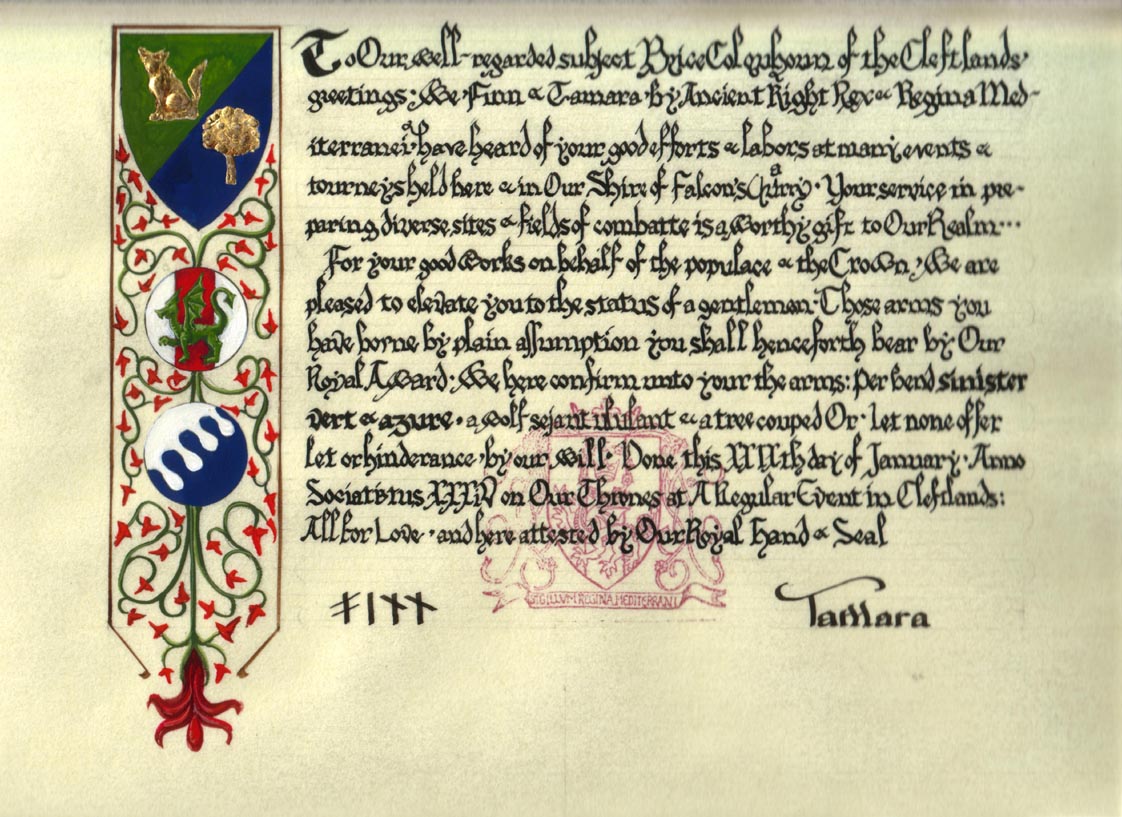 To Our well-regarded subject Brice Colquhoun of the Cleftlands·
greetings· We Finn & Tamara by Ancient Right Rex & Regina Med-
iterranei· have heard of your good efforts & labors at many events &
tourneys held here & in Our Shire of Falcon's Quarry· Your service in pre-
paring diverse sites & fields of combatte is a worthy gift to Our Realm···
For your good works on behalf of the populace & the Crown, We are
pleased to elevate you to the status of a gentleman· Those arms you
have borne by plain assumption you shall henceforth bear by Our
Royal Award· We here confirm unto your the arms: per bend sinister
vert & azure· a wolf sejant ululant & a tree couped Or· Let none offer
let or hinderance· by our will· Done this day of January· Anno
on Our Thrones at A Regular Event in Cleftlands:
All for Love· and here attested by Our Royal Hand & Seal
SIGILLVM REGINA MEDITERRANI
ᚠᛁᚾᚾ Tamara